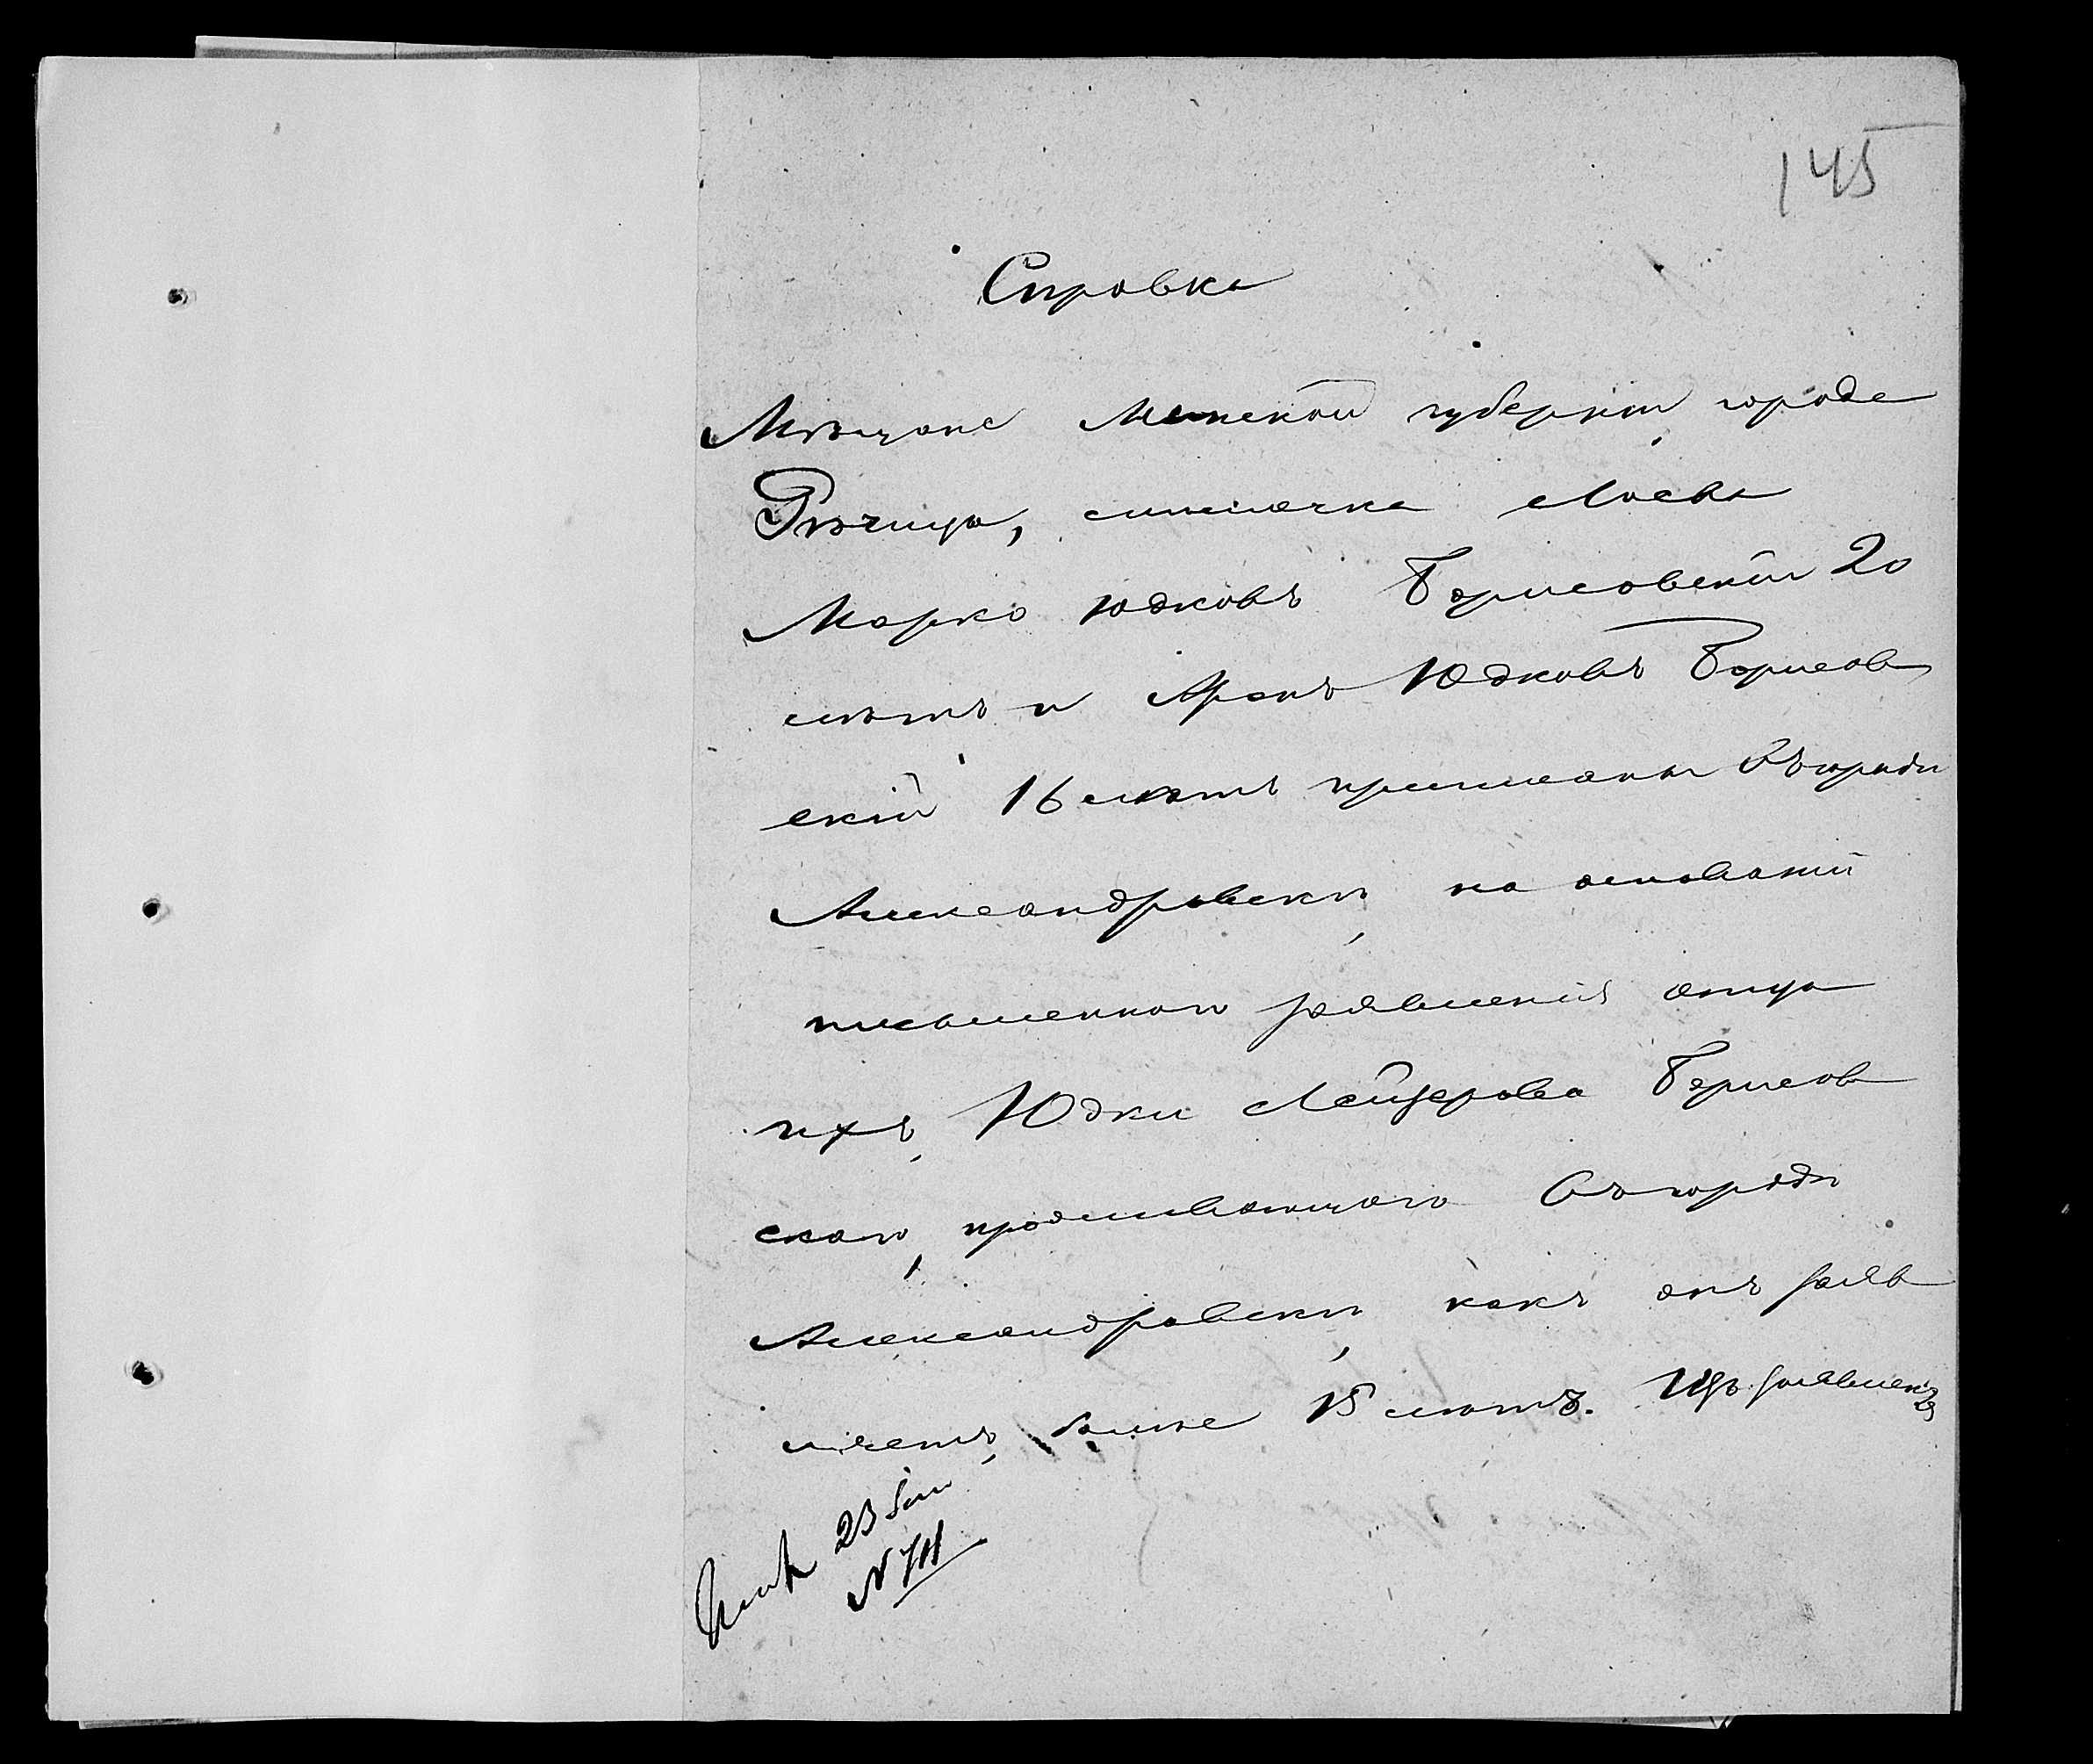 145
Справка
Мѣщане Минской губерніи, города
Рѣчица, мѣстечка Лоева
Марко Юдковъ Борисовскій 20
лѣтъ и Аронъ Юдковъ Борисов
скій 16 лѣтъ приписаны въ городѣ
Александровскѣ, на основаніи
письменнаго заявленія отца
ихъ, Юдки Лейзерова Борисов
скаго, проживающаго въ городѣ
Александровскѣ, какъ онъ заяв
ляетъ, болѣе 15 лѣтъ. Изъ заявленія
23